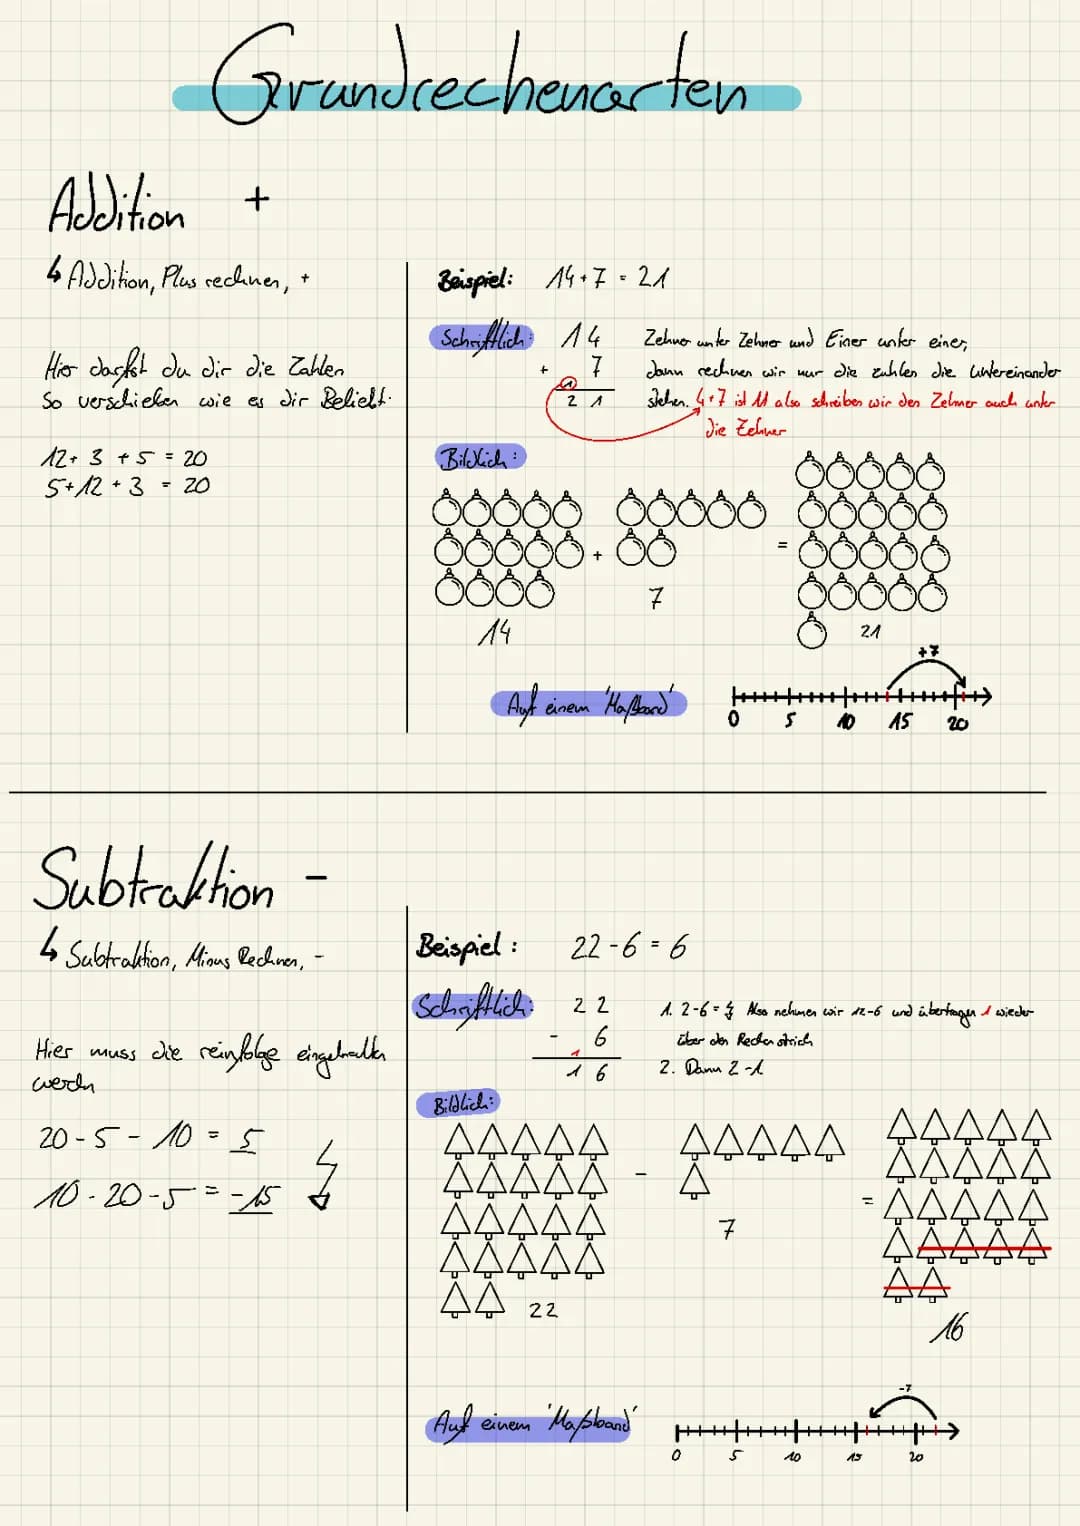 Grundrechenarten
Addition +
↳ Addition, Plus rechnen, +
Hier darfst du dir die Zahlen
So verschieben wie es dir Beliebt.
12 + 3 + 5 = 20
5 + 12 + 3 = 20
Beispiel: 14 + 7 = 21
Schriftlich: 14
+ 7
1
2 1
Zehner unter Zehner und Einer unter einer,
dann rechnen wir nur die zahlen die Untereinander
stehen. 4+7 ist 11 also schreiben wir den Zehner auch unter
die Zehner
Bildlich:
+
=
14
7
21
Auf einem 'Maßband'
+7
0 5 10 15 20
Subtraktion -
↳ Subtraktion, Minus Rechnen, -
Hier muss die reinfolge eingehalten
werdn
20 - 5 - 10 = 5
10 - 20 - 5 = -15
Beispiel: 22 - 6 = 6
Schriftlich: 22
- 6
1
1 6
1. 2-6 = Also nehmen wir 12-6 und übertragen 1 wieder
über den Rechenstrich
2. Dann 2-1
Bildlich:
-
=
22
7
16
Auf einem 'Maßband'
-7
0 5 10 15 20